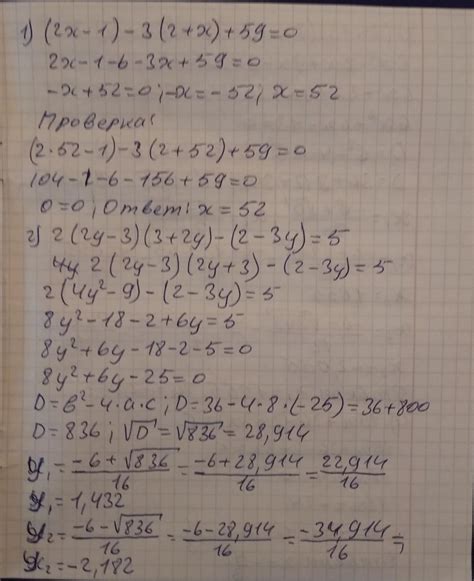 1) (2x-1)-3(2+x)+59=0
2x-1-6-3x+59=0
-x+52=0; -x=-52; x=52
Проверка:
(2·52-1)-3(2+52)+59=0
104-1-6-156+59=0
0=0; Ответ: x=52
2) 2(2y-3)(3+2y)-(2-3y)=5
2(2y-3)(2y+3)-(2-3y)=5
2(4y²-9)-(2-3y)=5
8y²-18-2+6y=5
8y²+6y-18-2-5=0
8y²+6y-25=0
D=b²-4·a·c; D=36-4·8·(-25)=36+800
D=836; √D=√836=28,914
y₁=(-6+√836)/16=(-6+28,914)/16=22,914/16
y₁=1,432
y₂=(-6-√836)/16=(-6-28,914)/16=(-34,914)/16=
y₂=-2,182